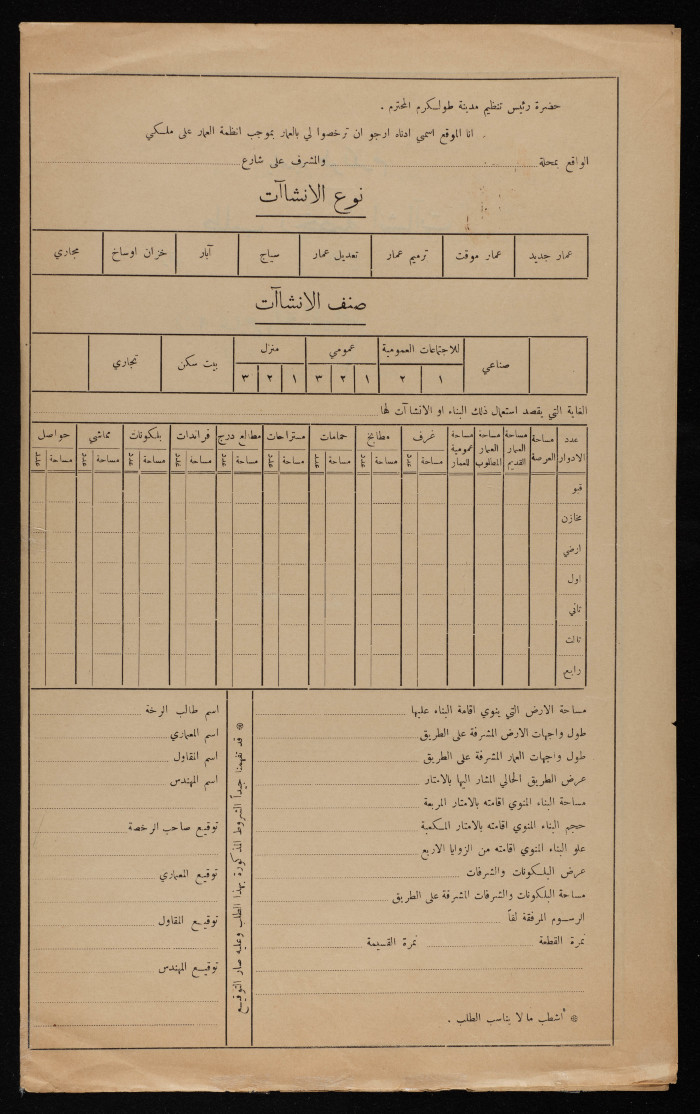 حضرة رئيس تنظيم مدينة طولكرم المحترم .
انا الموقع اسمي ادناه ارجو ان ترخصوا لي بالعمار بموجب انظمة العمار على ملكي
الواقع بمحلة والمشرف على شارع
نوع الانشاآت
عمار جديد عمار موقت ترميم عمار تعديل عمار سياج آبار خزان اوساخ مجاري
صنف الانشاآت
صناعي للاجتماعات العمومية عمومي منزل بيت سكن تجاري
١ ٢ ١ ٢ ٣ ١ ٢ ٣
الغاية التي يقصد استعمال ذلك البناء او الانشاآت لها
عدد الادوار مساحة العرصة مساحة العمار القديم مساحة العمار المطلوب مساحة عمومية للعمار غرف مطابخ حمامات مستراحات مطالع درج فراندات بلكونات مماشي حواصل
مساحة عدد مساحة عدد مساحة عدد مساحة عدد مساحة عدد مساحة عدد مساحة عدد مساحة عدد مساحة عدد
قبو
مخازن
ارضي
اول
ثاني
ثالث
رابع
مساحة الارض التي ينوي اقامة البناء عليها
طول واجهات الارض المشرفة على الطريق
طول واجهات العمار المشرفة على الطريق
عرض الطريق الحالي المشار اليها بالامتار
مساحة البناء المنوي اقامته بالامتار المربعة
حجم البناء المنوي اقامته بالامتار المكعبة
علو البناء المنوي اقامته من الزوايا الاربع
عرض البلكونات والشرفات
مساحة البلكونات والشرفات المشرفة على الطريق
الرسوم المرفقة لفاً
نمرة القطعة نمرة القسيمة
* أشطب ما لا يناسب الطلب .
* قد تفهمنا جيداً الشروط المذكورة بهذا الطلب وعليه صار التوقيع
اسم طالب الرخة
اسم المعماري
اسم المقاول
اسم المهندس
توقيع صاحب الرخصة
توقيع المعماري
توقيع المقاول
توقيع المهندس